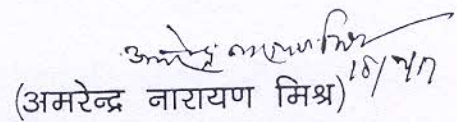 अमरेन्द्र नारायण मिश्र
(अमरेन्द्र नारायण मिश्र)